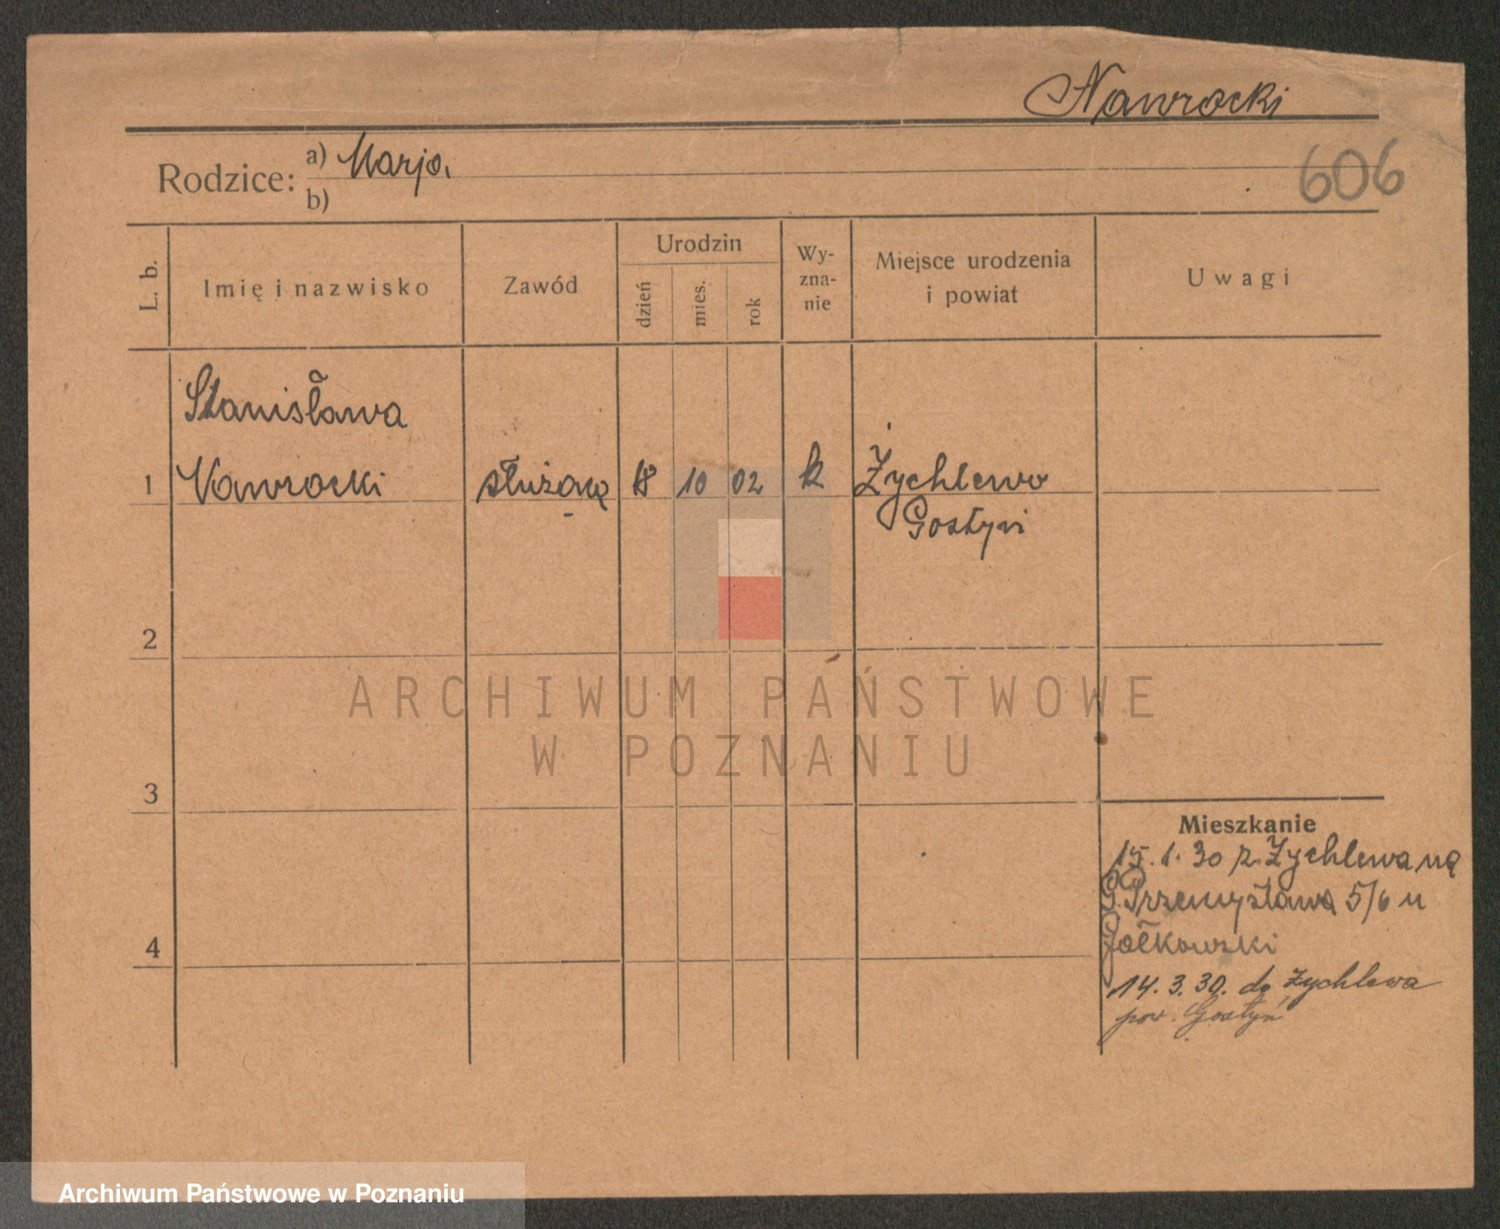 Nawrocki
Rodzice: a) Marja.
b)
606
L. b.
Imię i nazwisko
Zawód
Urodzin
dzień
mies.
rok
Wy-
zna-
nie
Miejsce urodzenia
i powiat
Uwagi
Stanisława
1 Nawrocki służącą 18 10 02 k Żychlewo
Gostyń
2
3
4
Mieszkanie
15.1.30 z Żychlewa na
Przemysława 5/6 u
Żółkowski
14.3.30. do Żychlewa
pow. Gostyń
ARCHIWUM PAŃSTWOWE
W POZNANIU
Archiwum Państwowe w Poznaniu